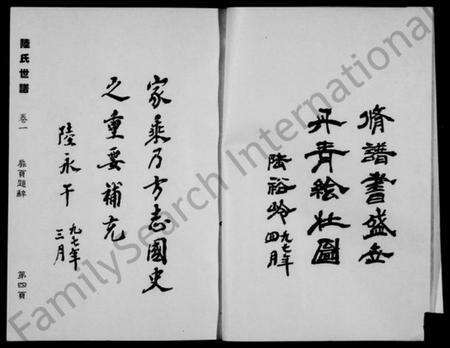 脩譜書盛世
丹青繪壯圖
陸裕嶺
九七年
四月
家乘乃方志國史
之重要補充
陸永午
九七年
三月
陸氏世譜
卷一
扉頁題辭
第四頁
FamilySearch International